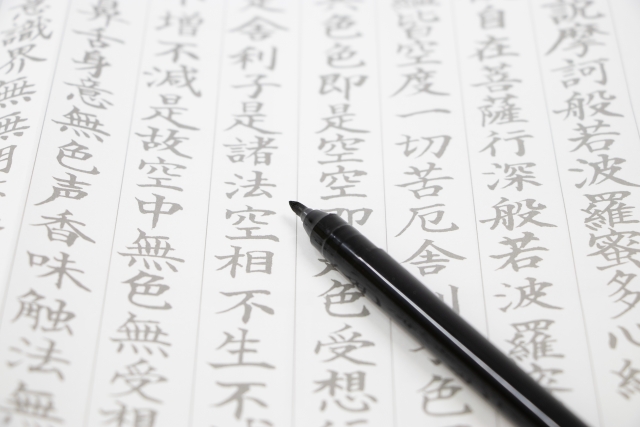 説摩訶般若波羅蜜多心
自在菩薩行深般若波羅蜜
蘊皆空度一切苦厄舎利色
異色色即是空空即是色受想行
是舎利子是諸法空相不生不滅
増不減是故空中無色無受想
鼻舌身意無色声香味触法無
意識界無無明